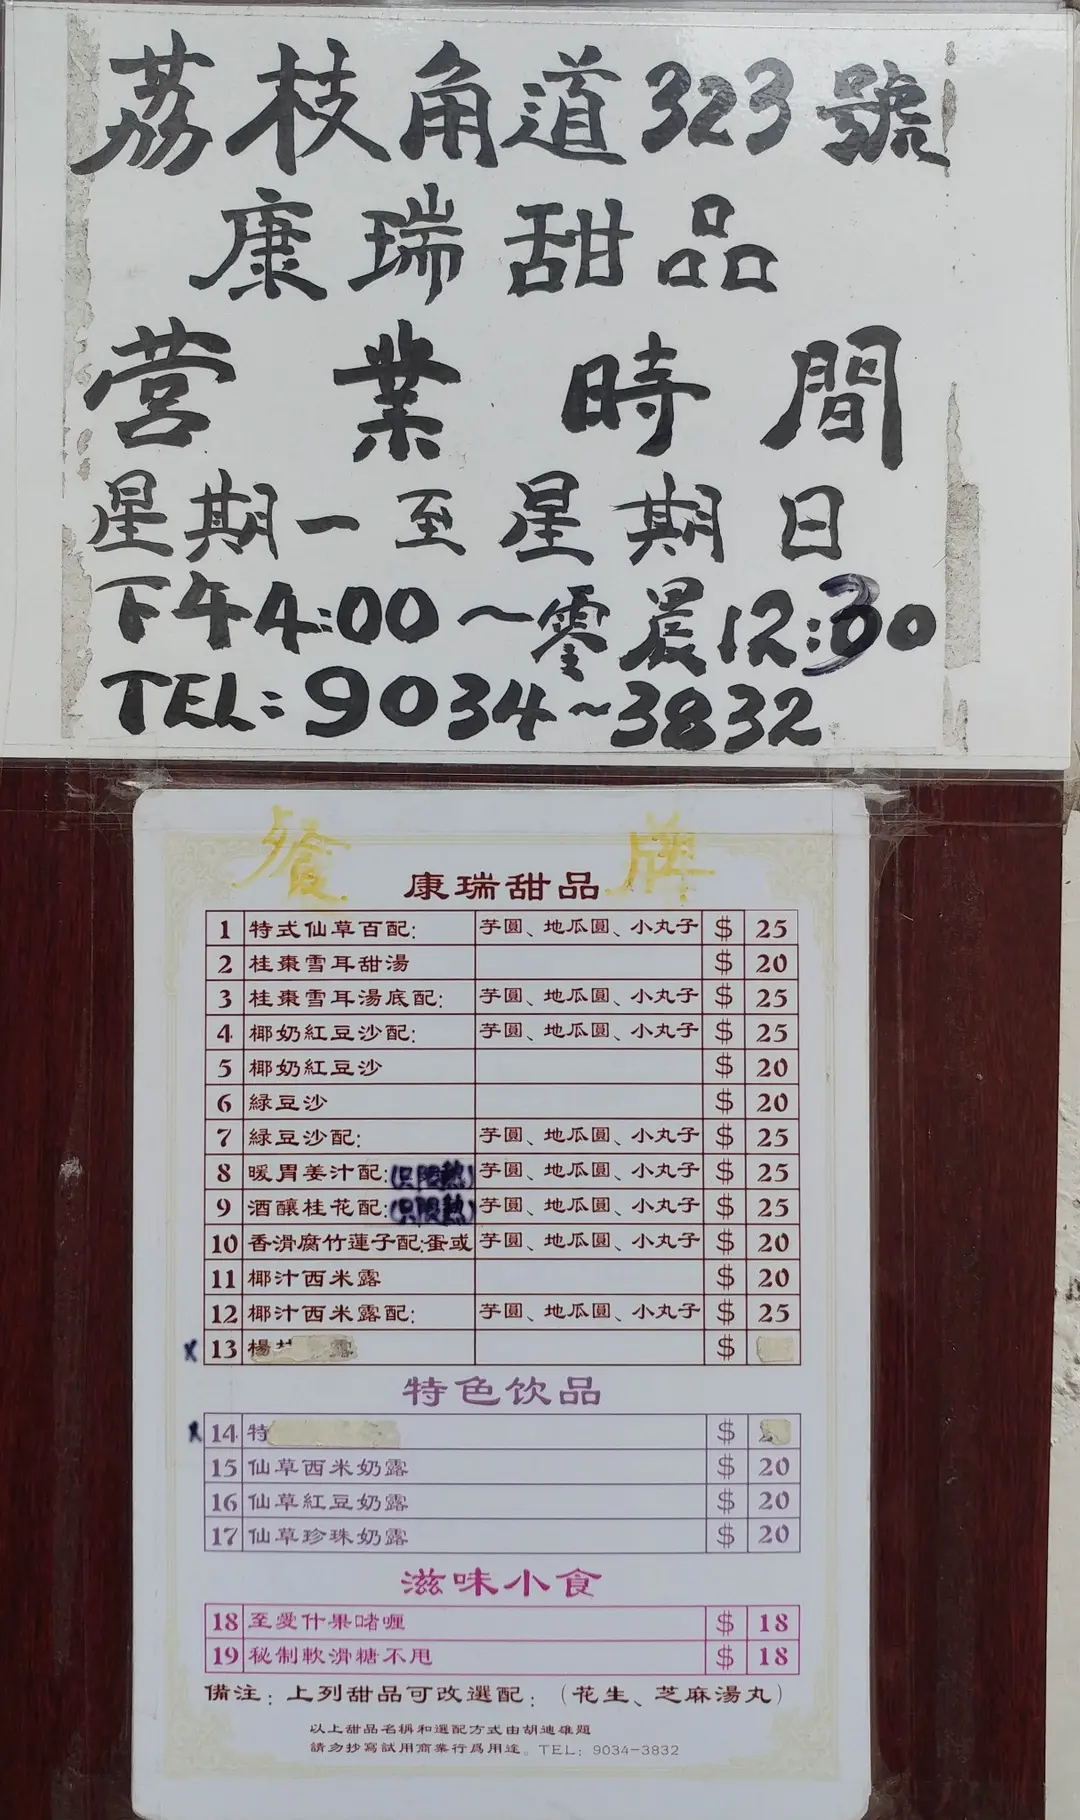 荔枝角道323號
康瑞甜品
营業時間
星期一至星期日
下午4:00～零晨12:30
TEL:9034~3832
餐牌
康瑞甜品
1 特式仙草百配: 芋圓、地瓜圓、小丸子 $ 25
2 桂棗雪耳甜湯 $ 20
3 桂棗雪耳湯底配: 芋圓、地瓜圓、小丸子 $ 25
4 椰奶紅豆沙配: 芋圓、地瓜圓、小丸子 $ 25
5 椰奶紅豆沙 $ 20
6 綠豆沙 $ 20
7 綠豆沙配: 芋圓、地瓜圓、小丸子 $ 25
8 暖胃姜汁配:(只限熱) 芋圓、地瓜圓、小丸子 $ 25
9 酒釀桂花配:(只限熱) 芋圓、地瓜圓、小丸子 $ 25
10 香滑腐竹蓮子配:蛋或 芋圓、地瓜圓、小丸子 $ 20
11 椰汁西米露 $ 20
12 椰汁西米露配: 芋圓、地瓜圓、小丸子 $ 25
x 13 楊 $
特色饮品
x 14 特 $
15 仙草西米奶露 $ 20
16 仙草紅豆奶露 $ 20
17 仙草珍珠奶露 $ 20
滋味小食
18 至愛什果啫喱 $ 18
19 秘制軟滑糖不甩 $ 18
備注：上列甜品可改選配：（花生、芝麻湯丸）
以上甜品名稱和選配方式由胡迪雄題
請勿抄寫試用商業行爲用途。TEL: 9034-3832